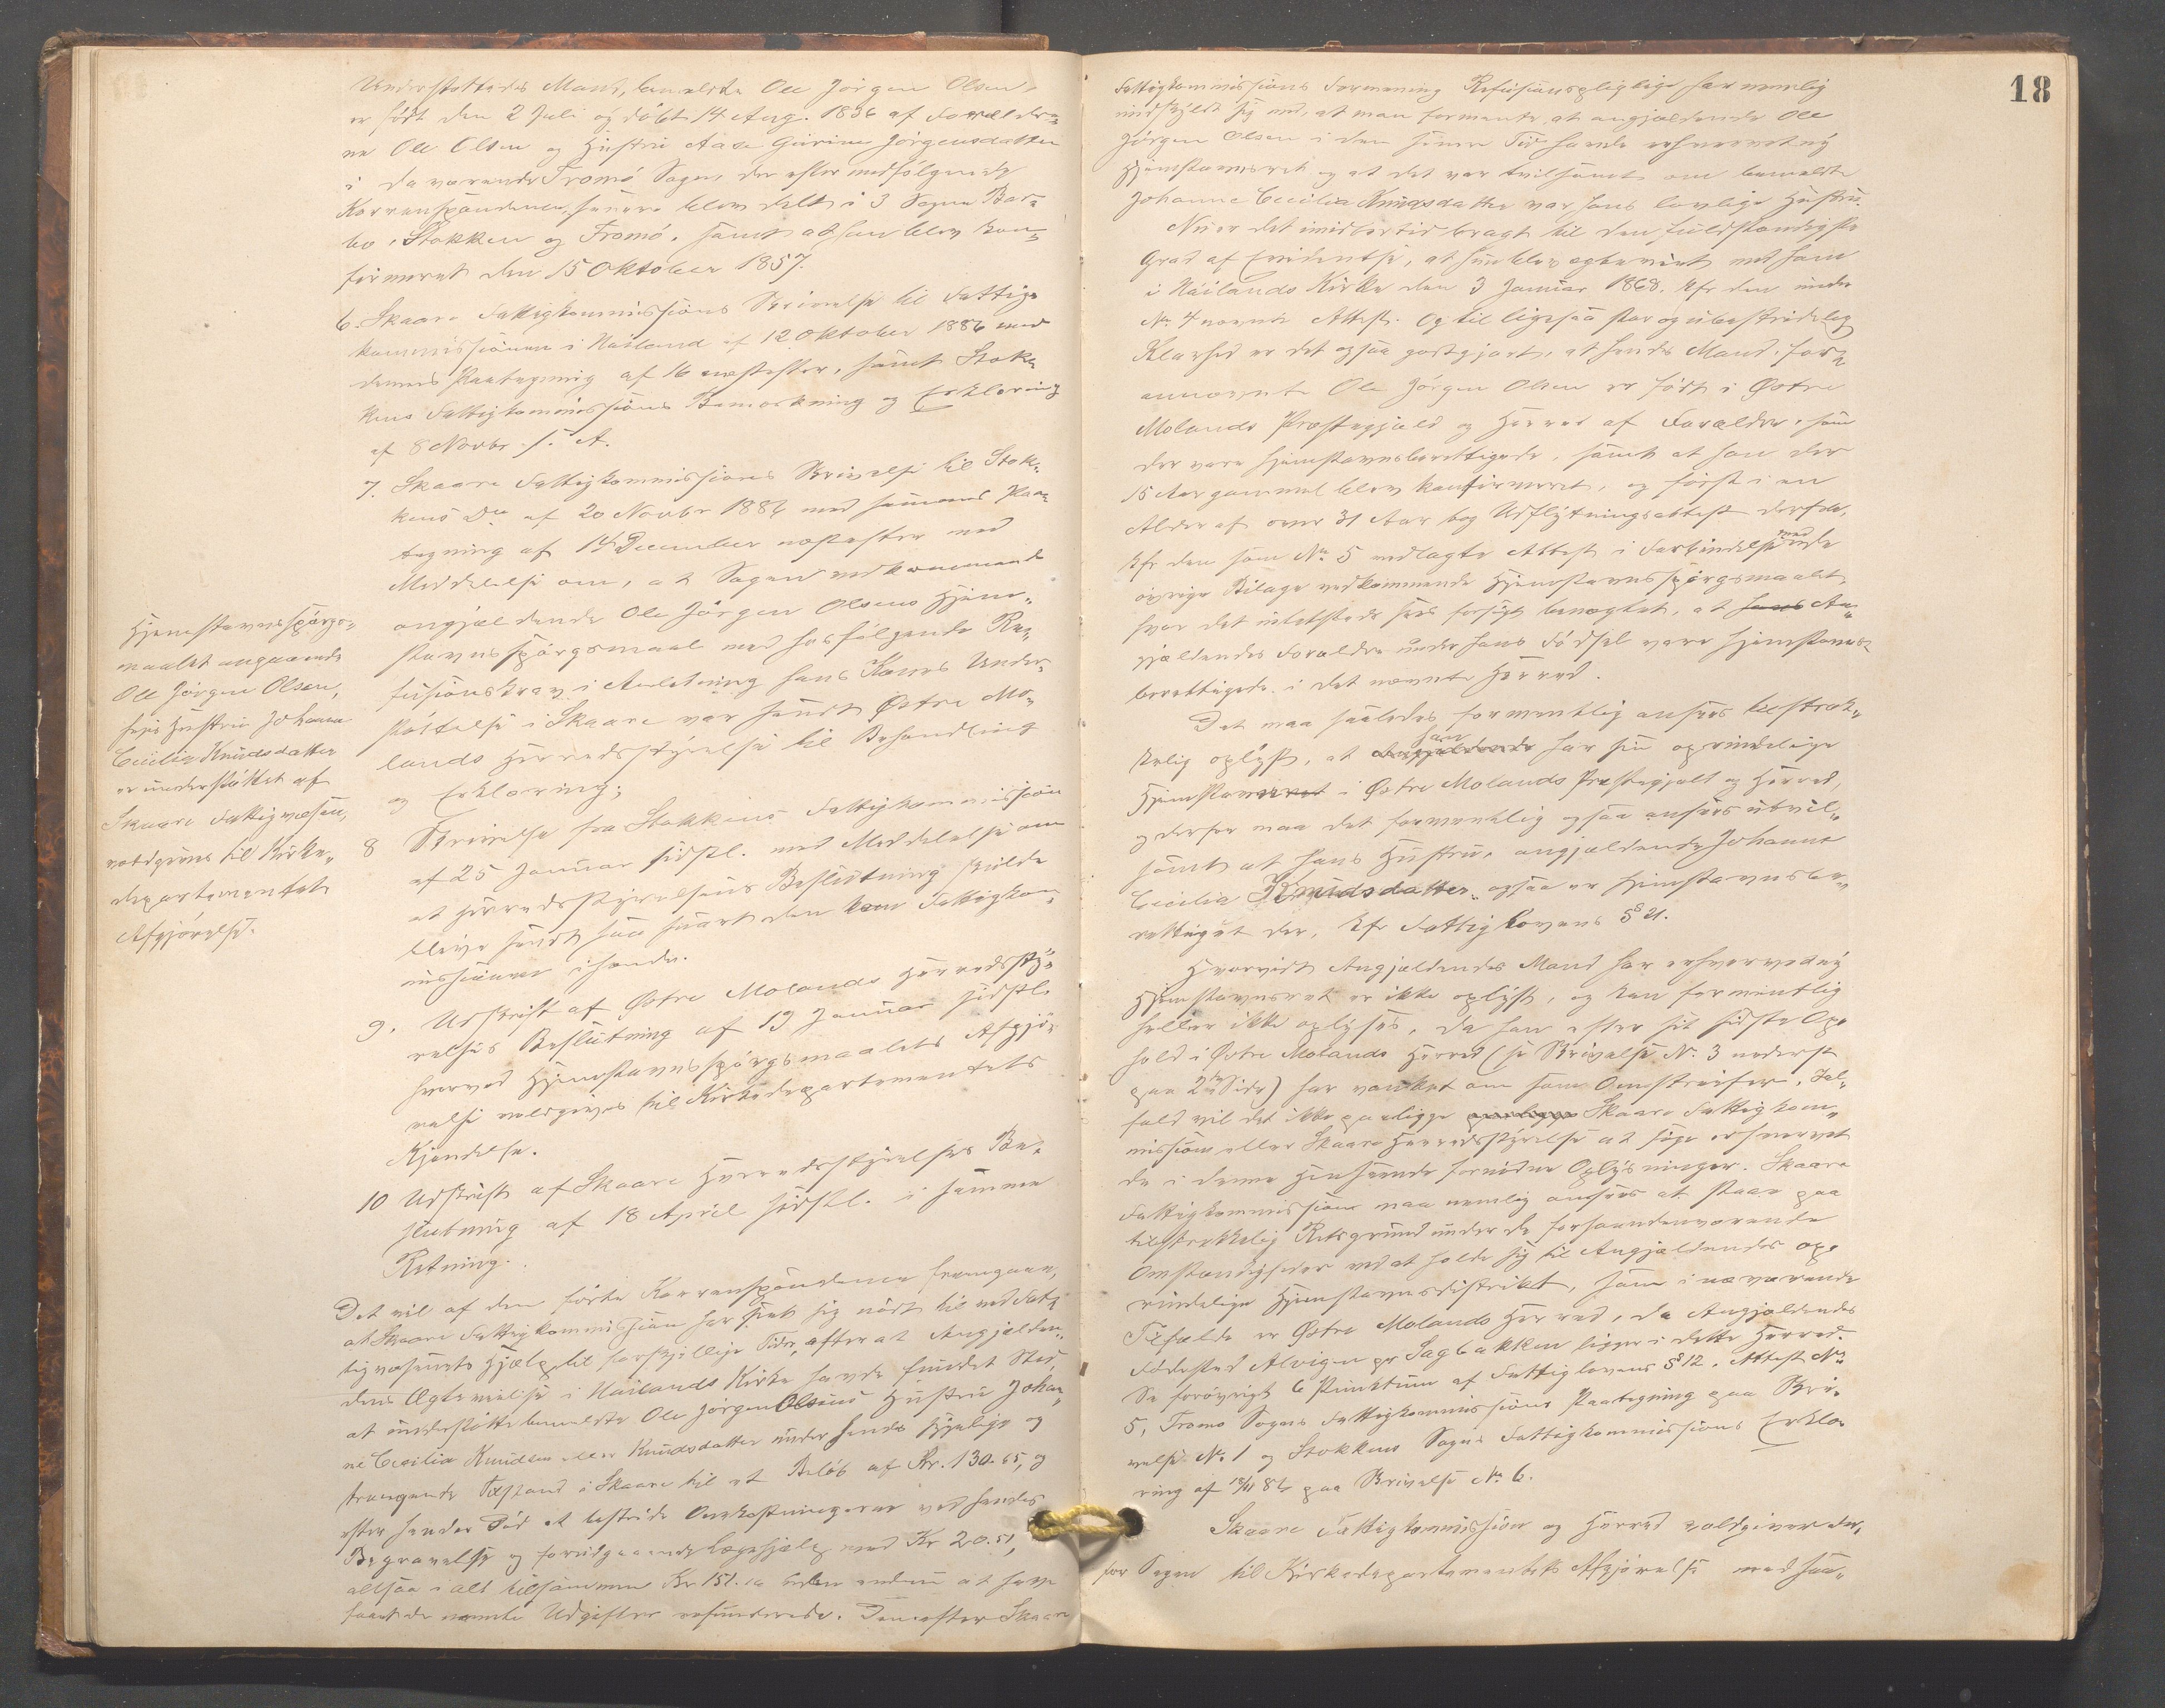 Understøttedes Mand, bemeldte Ole Jörgen Olsen
er født den 2 Juli og döbt 14 Aug. 1836 af Foræld­re-
ne Ole Olsen og Hustru Aase Gurine Jörgensdatter
i daværende Tromö Sogn, der efter medfölgende
Korrespondence, senere blev delt i 3 Sogne Bar-
bo, Stokken og Tromö. samt at han blev kon-
firmeret den 15 Oktober 1857.
6. Skaare Fattigkommissions Skrivelse til Fattig-
kommissionen i Nailand af 12 Oktober 1886 med
dennes Paategning af 16 næstefter, samt Stok-
kens Fattigkommissions Bemærkning og Erklæring
af 8 Novbr. s. A.
7. Skaare Fattigkommissions Skrivelse til Stok-
kens Do af 20 Novbr 1886 med sammes Paa-
tegning af 14 December næstefter med
Meddelelse om, at Sagen vedkommende
angjældende Ole Jörgen Olsens Hjem-
stavnsspörgsmaal med hosfölgende Re-
fusionskrav i Anledning hans Kones Under-
støttelse i Skaare var sendt Östre Mo-
lands Herredsstyrelse til Behandling
og Erklæring;
8 Skrivelse fra Stokkens Fattigkommission
af 25 Januar sidstl. med Meddelelse om
at Herredsstyrelsens Beslutning skulde
blive sendt saa snart den kom Fattigkom-
missionen ihænde.
9. Udskrift af Östre Molands Herredssty-
relses Beslutning af 19 Januar sidstl.
hvorved Hjemstavnsspörgsmaalets Afgjö-
relse voldgives til Kirkedepartementets
Kjendelse.
10 Udskrift af Skaare Herredsstyrelses Be-
slutning af 18 April sidstl. i samme
Retning.
Det vil af den förte Korrespondence fremgaa,
at Skaare Fattigkommission har seet sig nödt til ved Fat-
tigvæsenets Hjælp til forskjellige Tider, efterat Angjælden-
des Ægtevielse i Nailands Kirke havde fundet Sted,
at understötte bemeldte Ole Jörgen Olsens Hustru Johan-
ne Cecilia Knudsen eller Knudsdatter under hendes sygelige og
trængende Tilstand i Skaare til et Belöb af Kr. 130.65, og
efter hendes Död at bestride Omkostningerne ved hendes
Begravelse og forudgaaende Lægehjælp med Kr 20.51,
altsaa i alt tilsammen Kr 151.16 uden endnu at have
faaet de nævnte Udgifter refunderede. Den efter Skaare
Hjemstavnsspörgs-
maalet angaaende
Ole Jörgen Olsen,
hvis Hustru Johanne
Cecilia Knudsdatter
er understöttet af
Skaare Fattigvæsen,
voldgives til Kirke-
departementets
Afgjörelse.
18
Fattigkommissions Formening Refusionspligtige har nemlig
undskyldt sig med, at man formente at angjældende Ole
Jörgen Olsen i den senere Tid havde erhvervet ny
Hjemstavnsret og at det var tvilsomt om bemeldte
Johanne Cecilia Knudsdatter var hans lovlige Hustru.
Nu er det imidlertid bragt til den fuldstændigste
Grad af Evidentse, at hun blev ægteviet med ham
i Nailands Kirke den 3 Januar 1868. Kfr den under
No 4 nævnte Attest. Og til ligesaa stor og ubestridelig
Klarhed er det ogsaa godtgjort, at hendes Mand, for-
annævnte Ole Jörgen Olsen er födt i Östre
Molands Præstegjæld og Herred af Forældre, som
der vare hjemstavnsberettigede, samt at han der
15 Aar gammel blev konfirmeret, og först i en
Alder af over 31 Aar tog Udflytningsattest derfra,
kfr den som No 5 vedlagte Attest i Forbindelse med de
övrige Bilage vedkommende Hjemstavnsspörgsmaalet
hvor det intetsteds sees forsögt benægtet, at hans An-
gjældendes Forældre under hans Födsel vare hjemstavns-
berettigede i det nævnte Herred.
Det maa saaledes formentlig ansees tilstræk-
kelig oplyst, at Angjældende han har sin oprindelige
Hjemstavnsret i Östre Molands Præstegjæld og Herred,
og derfor maa det formentlig ogsaa ansees utvil-
somt at hans Hustru, angjældende Johanne
Cecilia Knudsdatter ogsaa er hjemstavnsbe-
rettiget der, kfr Fattiglovens § 21.
Hvorvidt Angjældendes Mand har erhvervet ny
Hjemstavnsret er ikke oplyst, og kan formentlig
heller ikke oplyses, da han efter sit sidste Op-
hold i Östre Molands Herred (se Skrivelse No. 3 nederst
paa 2den Side) har vanket om som Omstreifer. Ial-
fald vil det ikke paaligge paaligge Skaare Fattigkom-
mission eller Skaare Herredsstyrelse at söge erhvervet
de i denne Henseende fornödne Oplysninger. Skaare
Fattigkommission maa nemlig ansees at staa paa
tilstrækkelig Retsgrund under de forhaandenværende
Omstændigheder ved at holde sig til Angjældendes op-
rindelige Hjemstavnsdistrikt, som i nærværende
Tilfælde er Östre Molands Herred, da Angjældendes
Födested Alvigen pr Sagbakken ligger i dette Herred.
Se forövrigt 6 Punktum af Fattiglovens § 12. Attest No
5, Tromö Sogns Fattigkommissions Paategning paa Skri-
velse No. 1 og Stokkens Sogns Fattigkommissions Erklæ-
ring af 18/11 86 paa Skrivelse No 6.
Skaare Fattigkommission og Herred voldgiver der-
for Sagen til Kirkedepartementets Afgjörelse med saa-